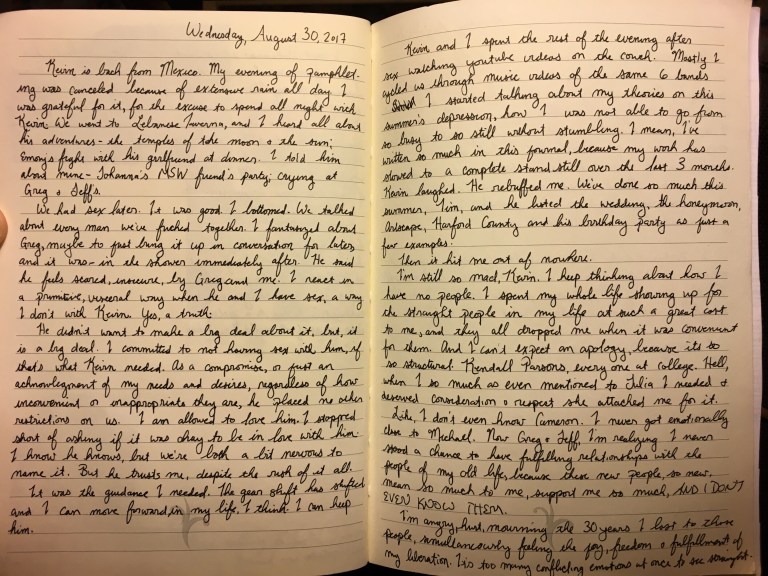 Wednesday, August 30, 2017
Kevin is back from Mexico. My evening of pamphlet-
ing was canceled because of extensive rain all day. I
was grateful for it, for the excuse to spend all night with
Kevin. We went to Lebanese Taverna, and I heard all about
his adventures - the temples of the moon & the sun;
Emory's fight with his girlfriend at dinner. I told him
about mine - Johanna's MSW friend's party; crying at
Greg & Jeff's.
We had sex later. It was good. I bottomed. We talked
about every man we've fucked together. I fantasized about
Greg, maybe to just bring it up in conversation for later,
and it was - in the shower immediately after. He said
he feels scared, insecure, by Greg and me. I react in
a primitive, visceral way when he and I have sex, a way
I don't with Kevin. Yes, a truth.
He didn't want to make a big deal about it, but, it
is a big deal. I committed to not having sex with him, if
that's what Kevin needed. As a compromise, or just an
acknowlegment of my needs and desires, regardless of how
inconvenient or inappropriate they are, he placed no other
restrictions on us. I am allowed to love him. I stopped
short of asking if it was okay to be in love with him.
I know he knows, but we're both a bit nervous to
name it. But he trusts me, despite the rush of it all.
It was the guidance I needed. The gear shift has shifted
and I can move forward, in my life, I think. I can keep
him.
Kevin and I spent the rest of the evening after
sex watching youtube videos on the couch. Mostly I
cycled us through music videos of the same 6 bands.
I started talking about my theories on this
summer's depression, how I was not able to go from
so busy to so still without stumbling. I mean, I've
written so much in this journal, because my work has
slowed to a complete stand still over the last 3 months.
Kevin laughed. He rebuffed me. We've done so much this
summer, Tim, and he listed the wedding, the honeymoon,
Artscape, Harford County and his birthday party as just a
few examples.
Then it hit me out of nowhere.
I'm still so mad, Kevin. I keep thinking about how I
have no people. I spent my whole life showing up for
the straight people in my life at such a great cost
to me, and they all dropped me when it was convenient
for them. And I can't expect an apology, because it's so
so structural. Kendall Parsons, every one at college. Hell,
when I so much as even mentioned to Julia I needed &
deserved consideration & respect she attacked me for it.
Like, I don't even know Cameron. I never got emotionally
close to Michael. Now Greg & Jeff, I'm realizing I never
stood a chance to have fulfilling relationships with the
people of my old life, because these new people, so new,
mean so much to me, support me so much, AND I DON'T
EVEN KNOW THEM.
I'm angry, hurt, mourning the 30 years I lost to those
people, simultaneously feeling the joy, freedom & fulfillment of
my liberation. It is too many conflicting emotions at once to see straight.